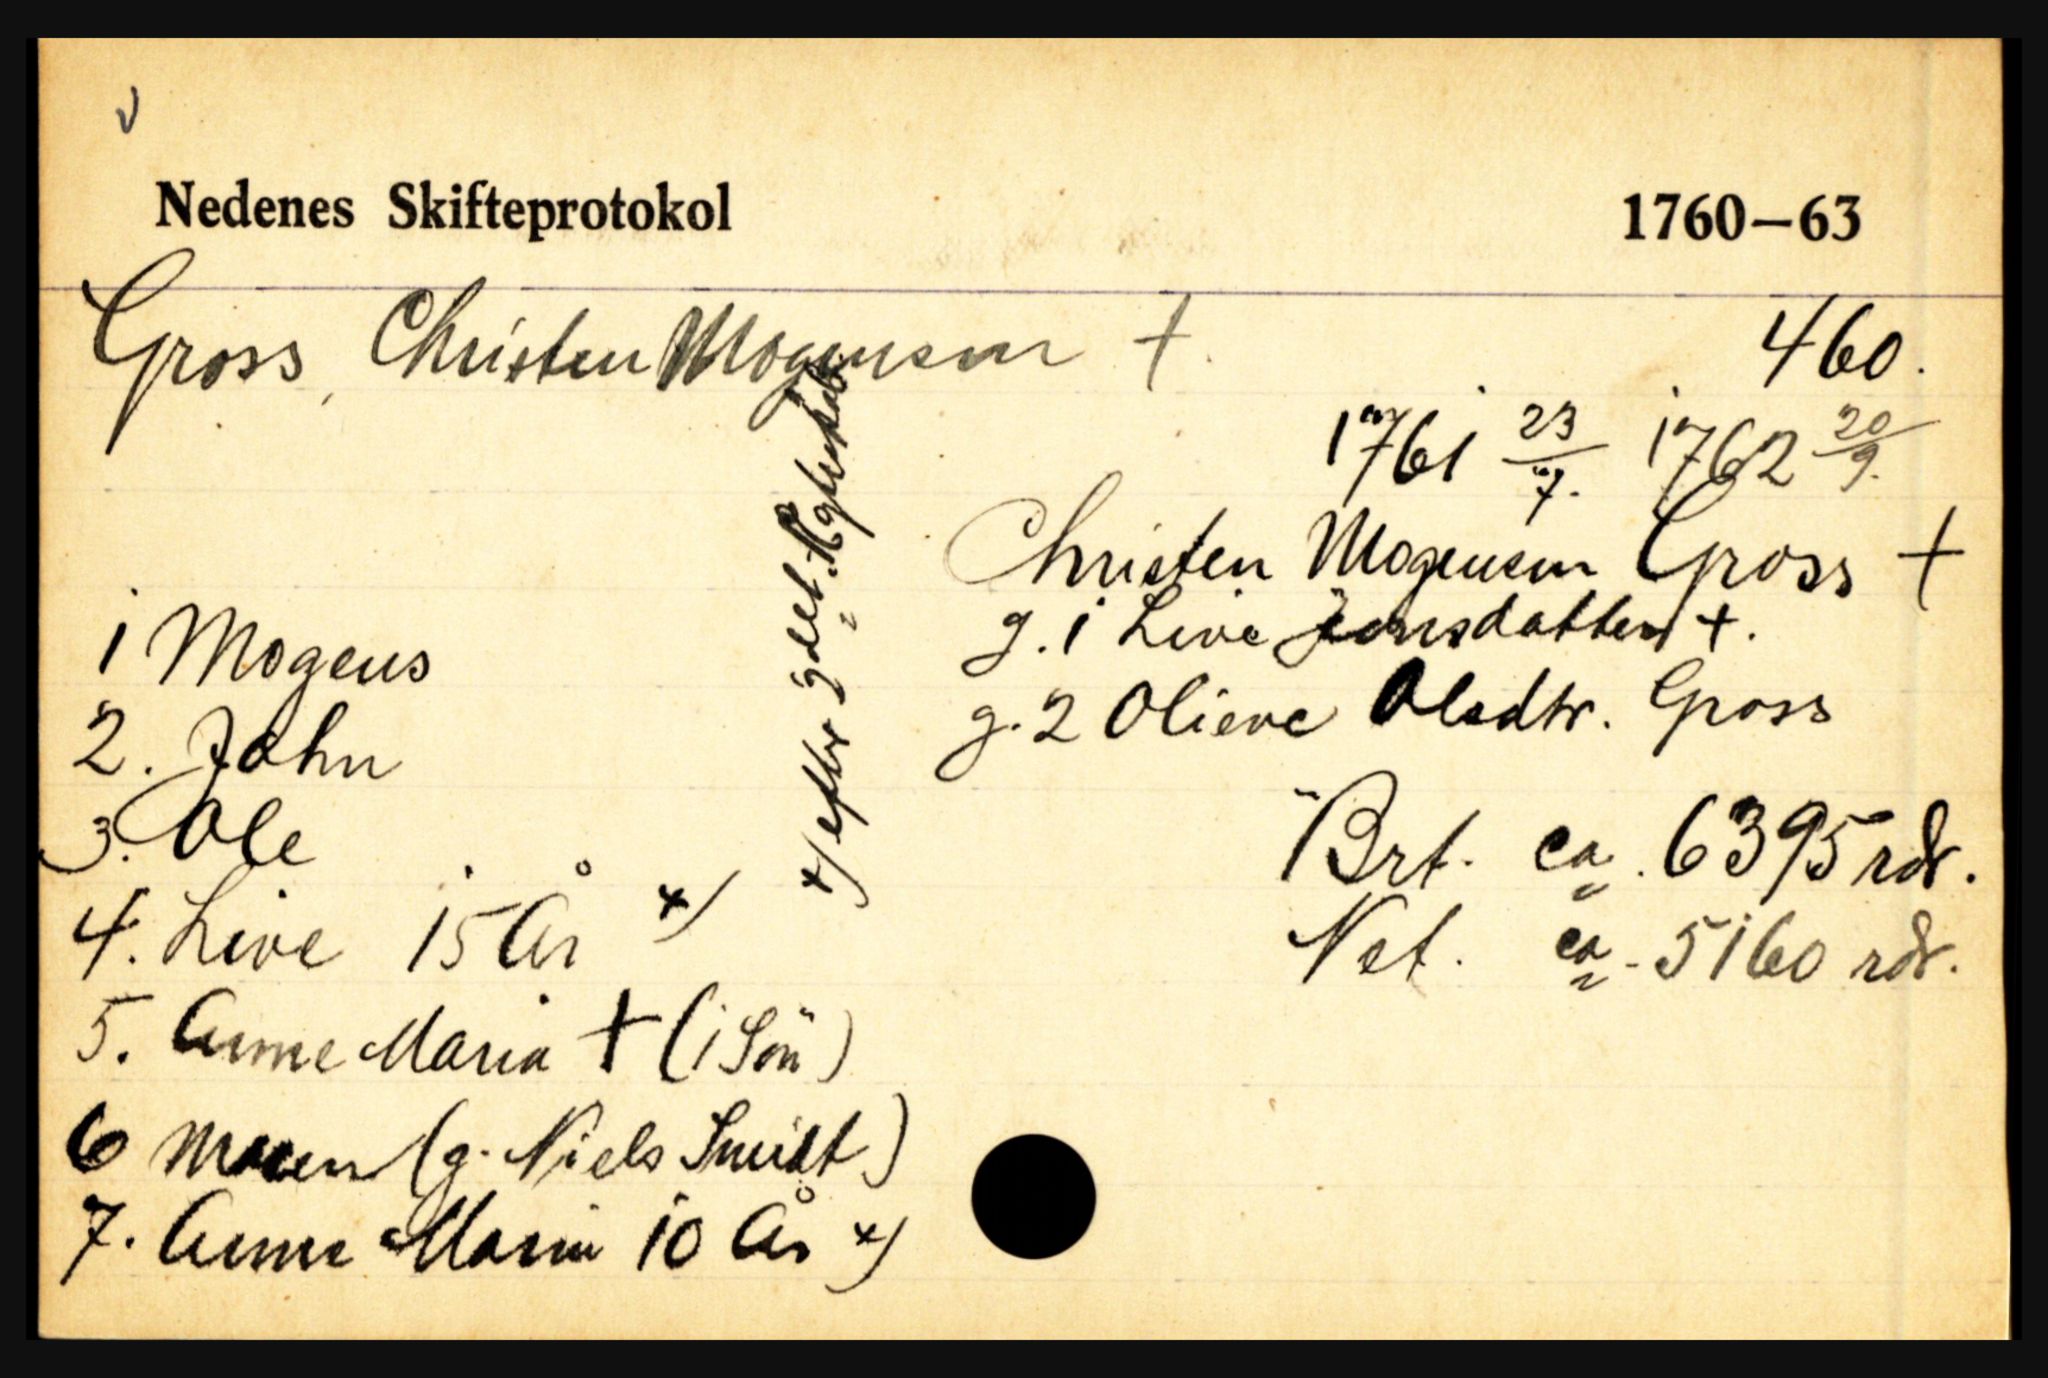 v
Nedenes Skifteprotokol 1760—63
Gross, Christen Mogensen +. 460.
1761 23/7. 1762 20/9.
Christen Mogensen Gross +
g. 1 Live Jensdatter +.
g. 2 Olieve Olsdtr. Gross
1 Mogens
2. John
3. Ole
4. Live 15 År x)
5. Anne Maria + (1 Sön)
6 Maren (g. Niels Smidt)
7. Anne Maria 10 År x)
x) efter 2det Ægteskab
Brt. ca. 6395 rdr.
Net. ca. 5160 rdr.